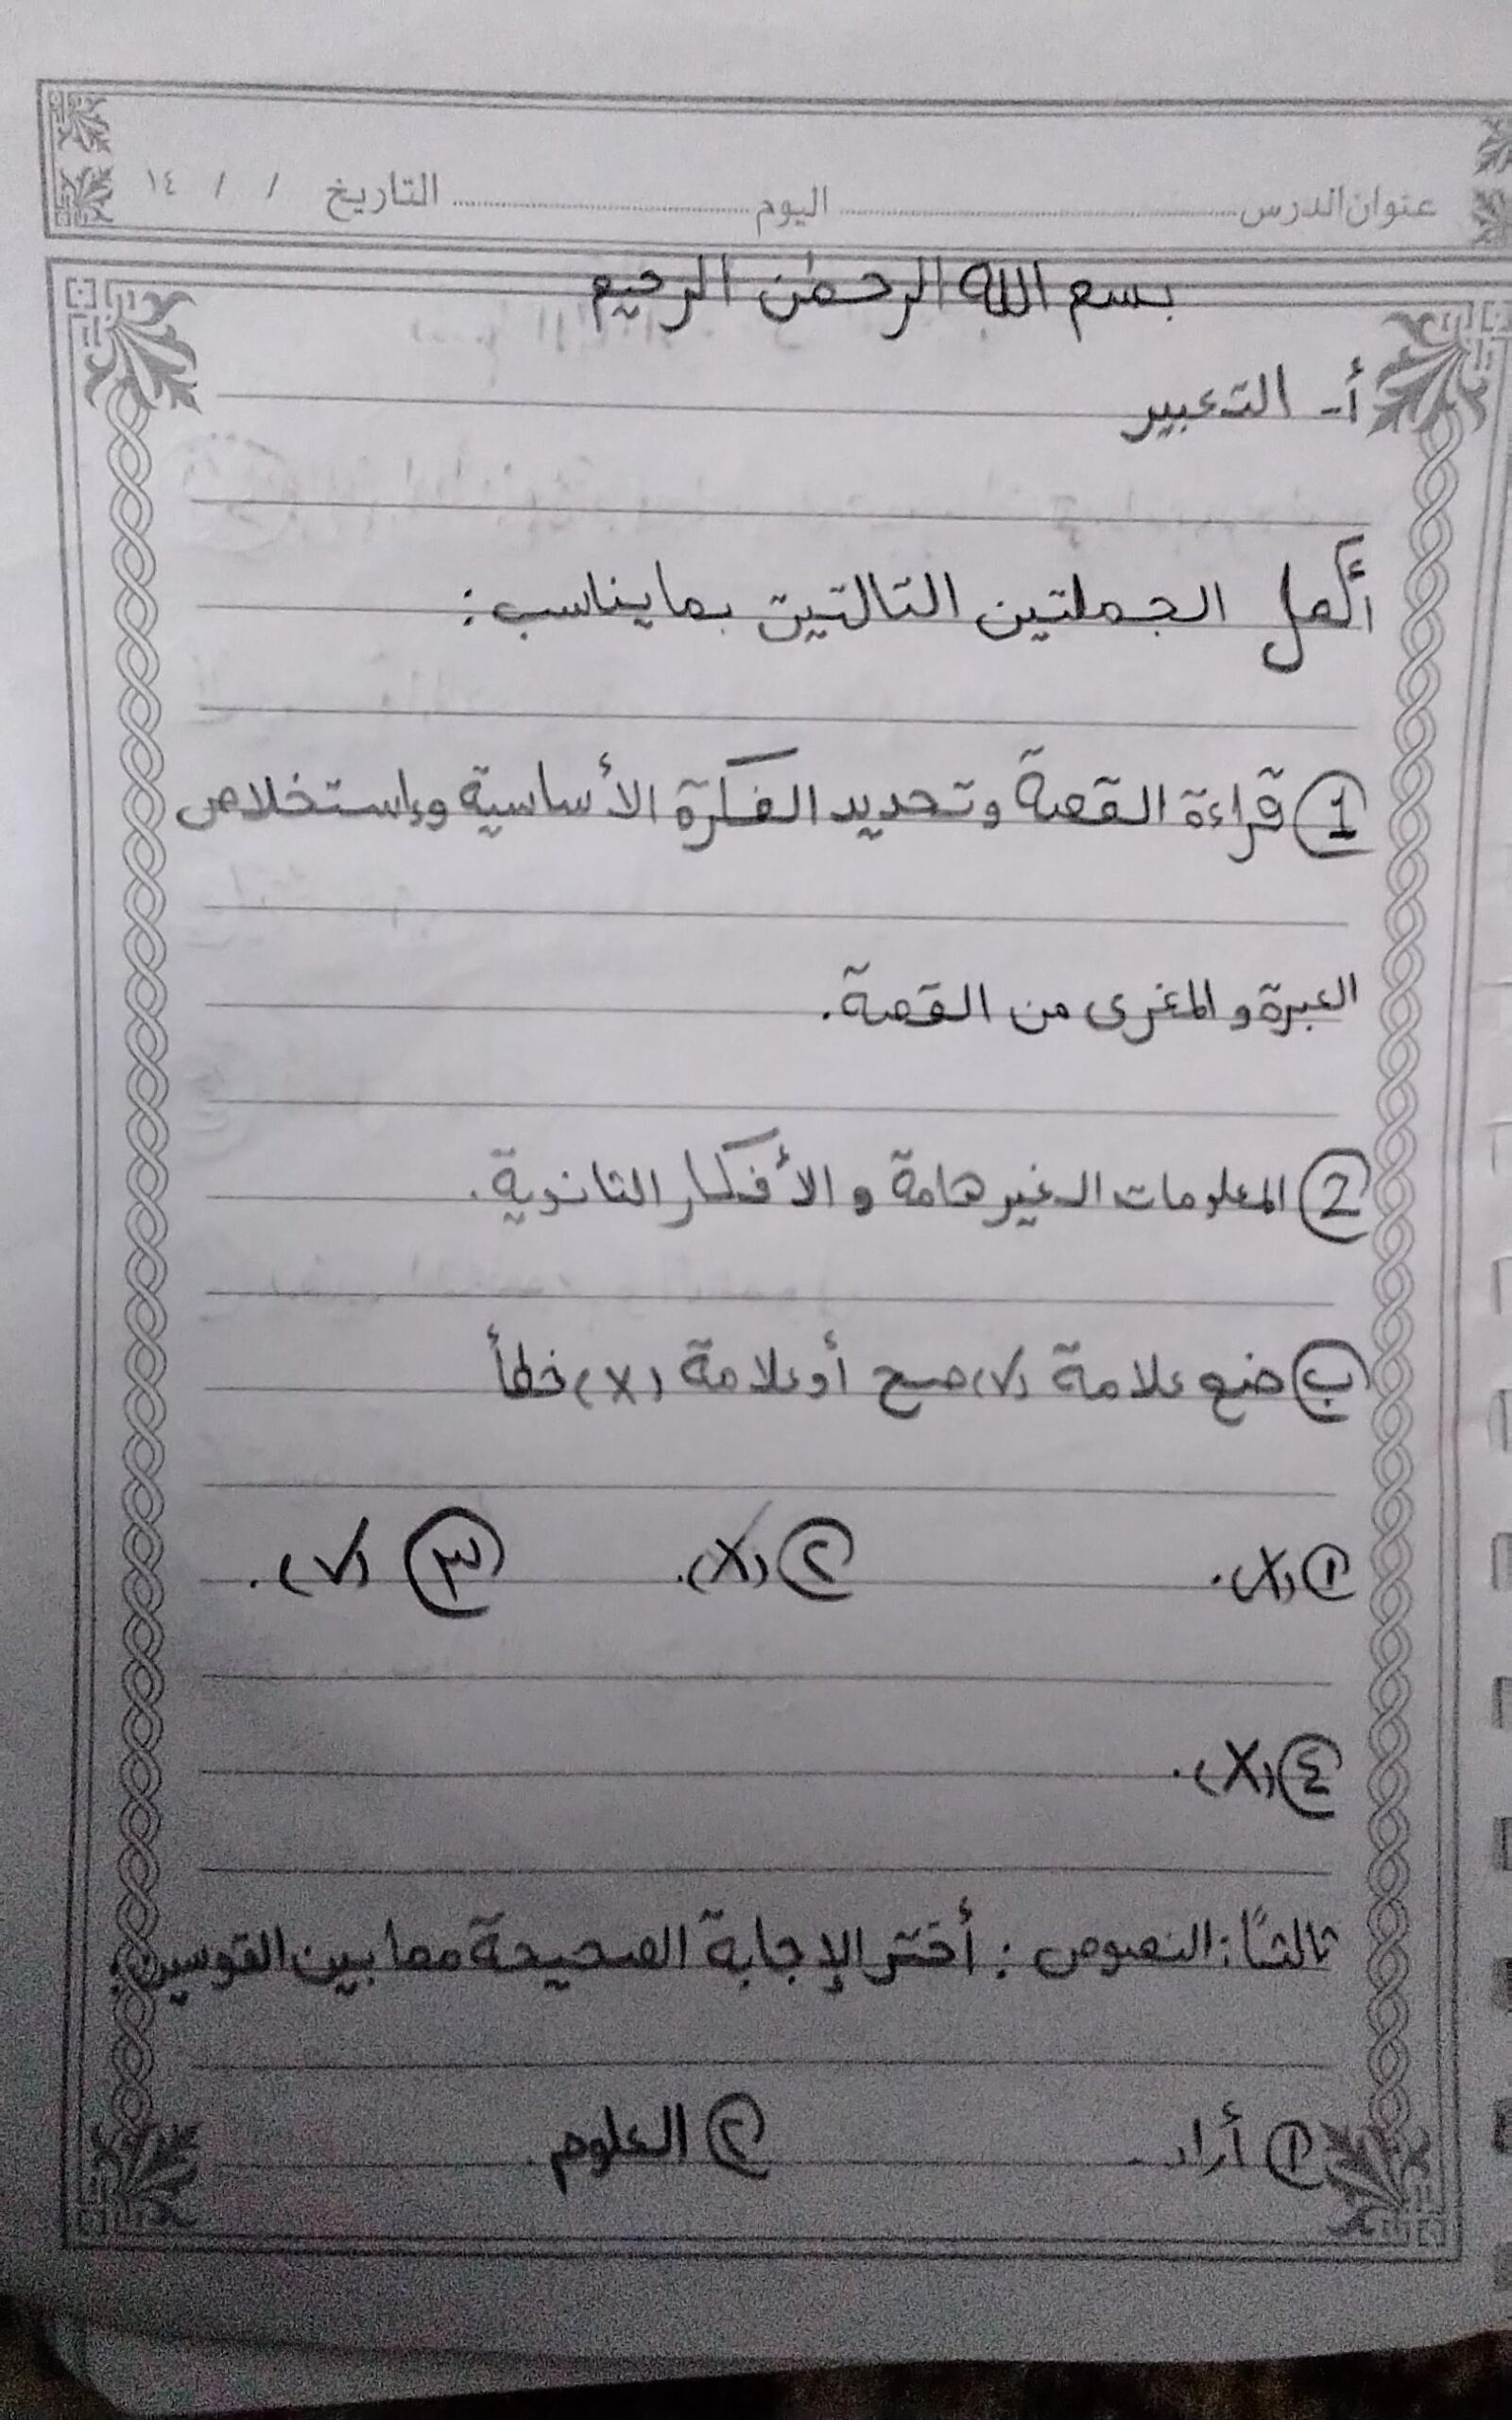 عنوان الدرس اليوم التاريخ / / ١٤
بسم الله الرحمٰن الرحيم
أ- التعبير
أكمل الجملتين التالتين بما يناسب:
1 قراءة القصة وتحديد الفكرة الأساسية وإستخلاص
العبرة والمغزى من القصة.
2 المعلومات الغير هامة والأفكار الثانوية.
ب ضع علامة (√) صح أو علامة (X) خطأ
١ (X). ٢ (X). ٣ (√).
٤ (X).
ثالثًا: النصوص: أختر الإجابة الصحيحة مما بين القوسين:
١ أراد. ٢ العلوم.